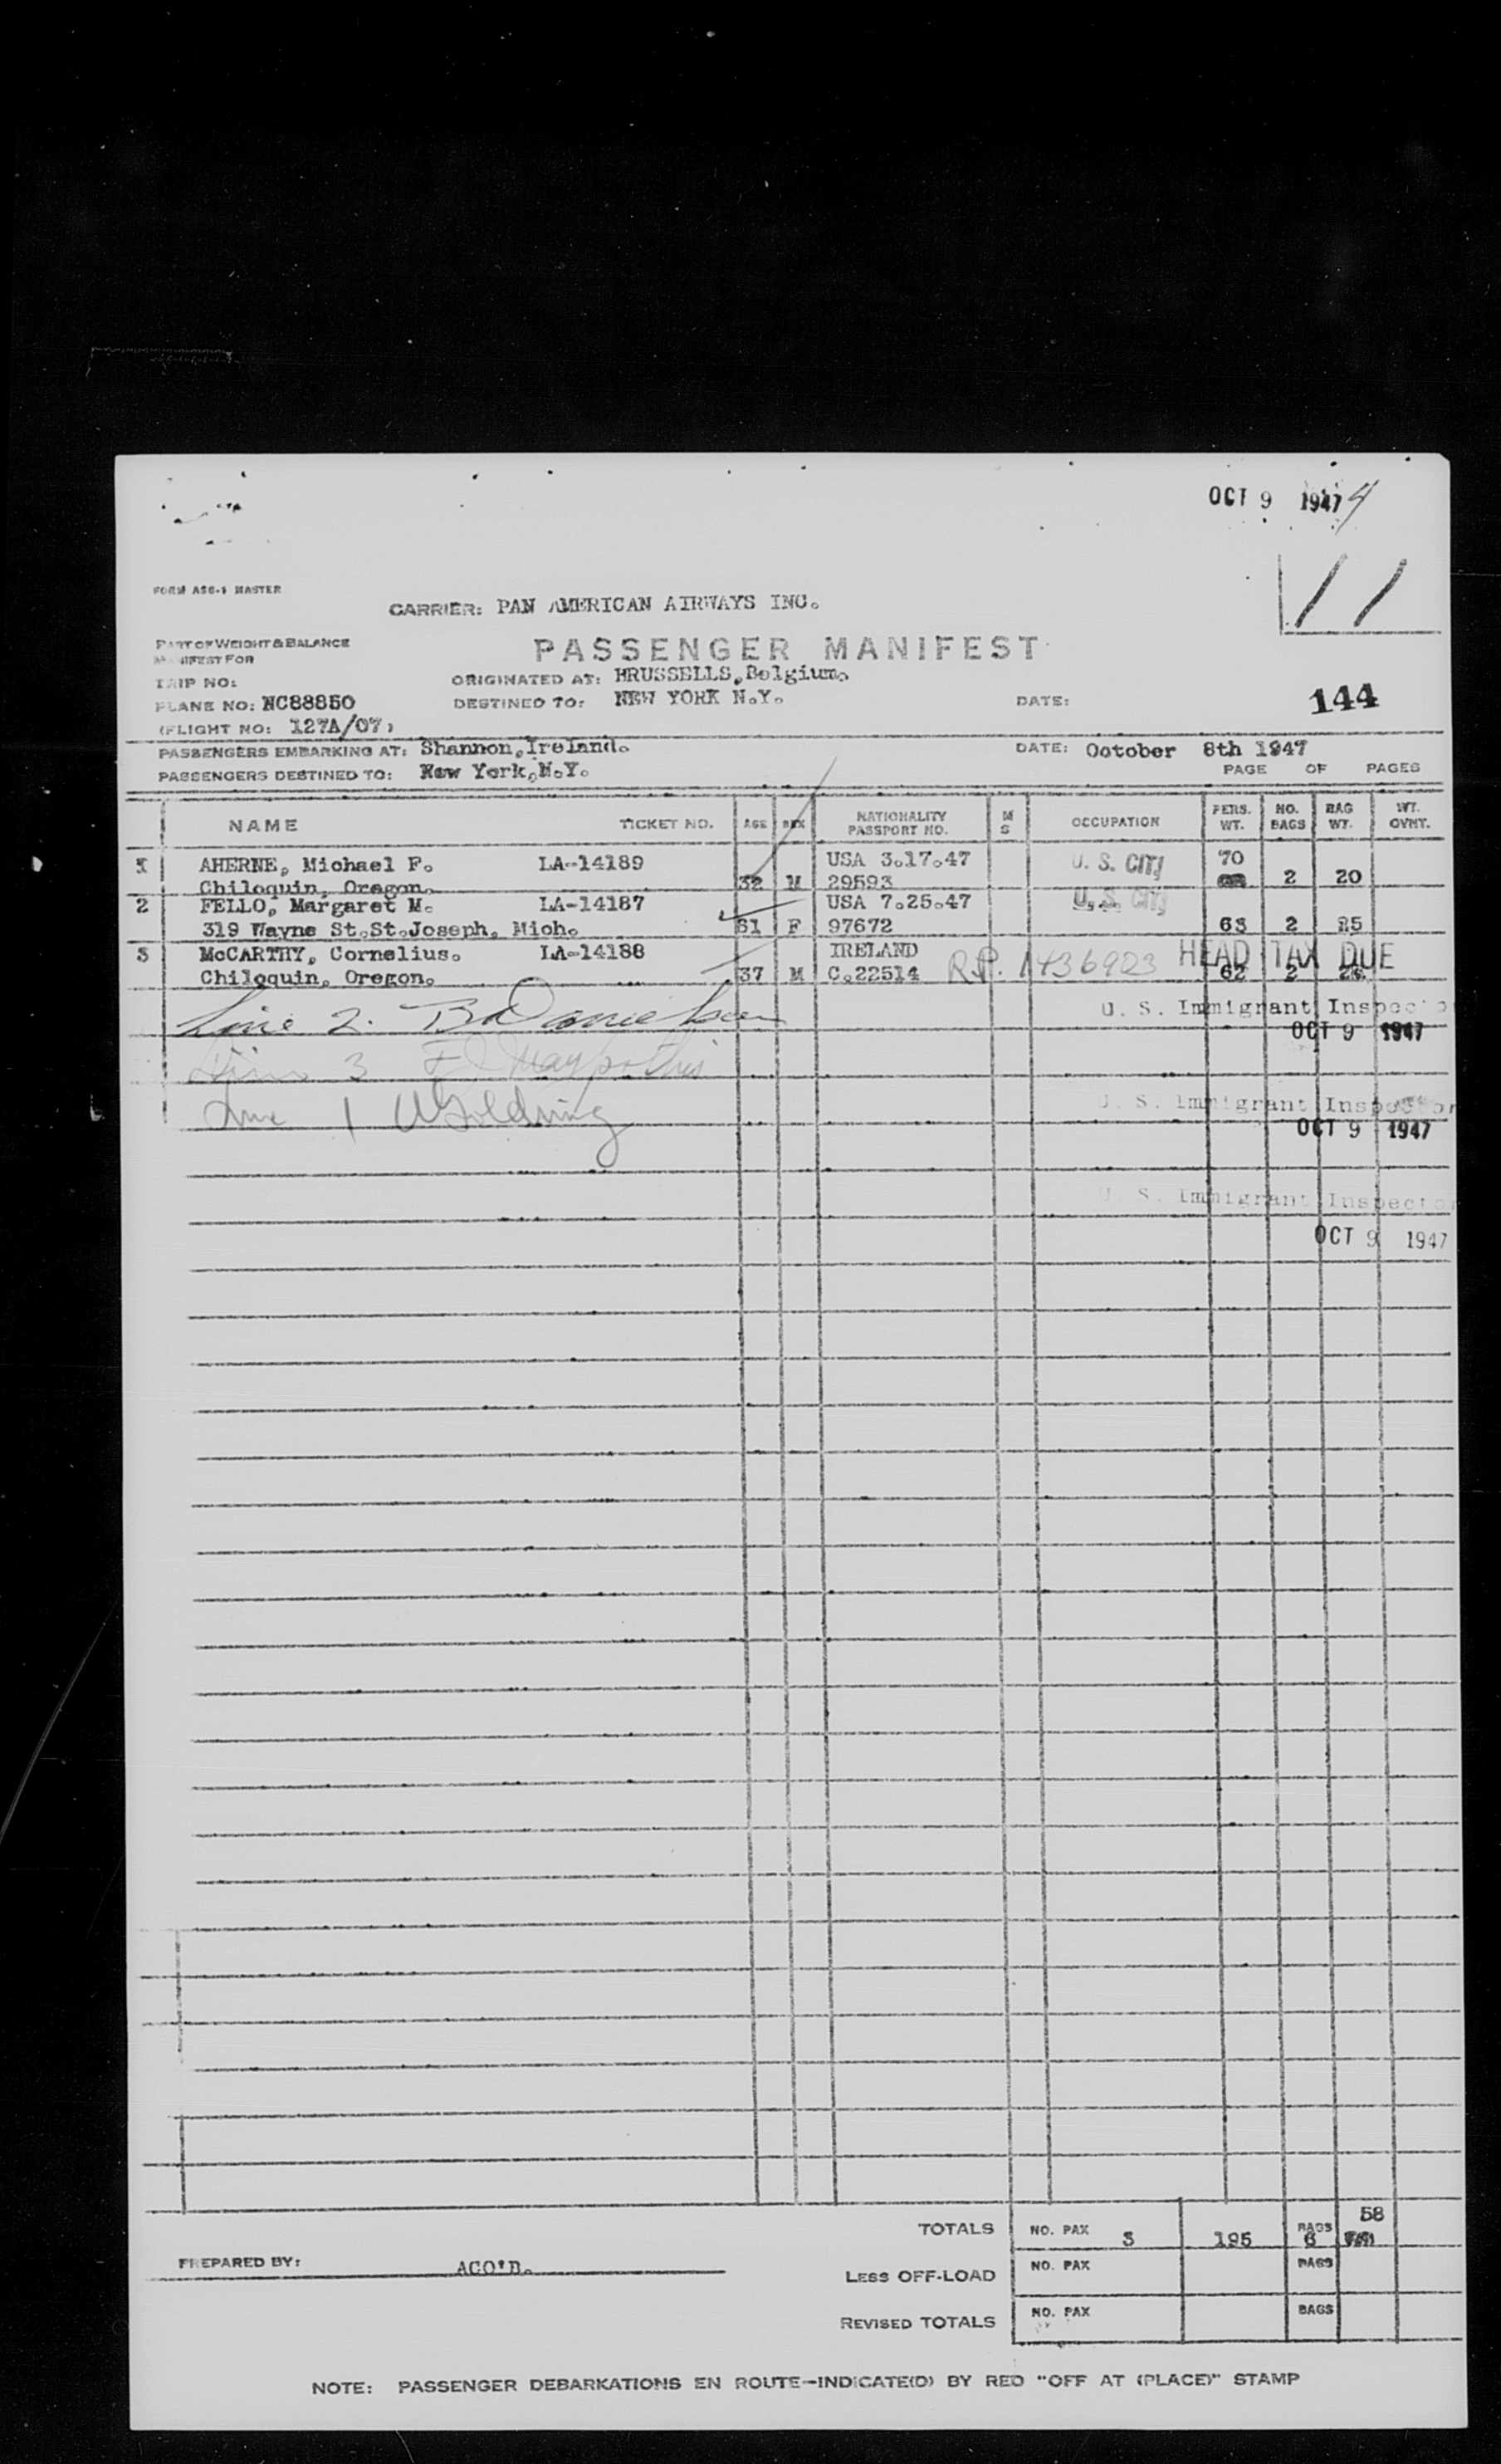 OCT 9 1947 4
11
FORM ASC-1 MASTER
CARRIER: PAN AMERICAN AIRWAYS INC.
PART OF WEIGHT & BALANCE
MANIFEST FOR
PASSENGER MANIFEST
TRIP NO:
ORIGINATED AT: BRUSSELLS, Belgium.
PLANE NO: NC88850
DESTINED TO: NEW YORK N.Y.
DATE:
144
(FLIGHT NO: 127A/07)
PASSENGERS EMBARKING AT: Shannon, Ireland.
DATE: October 8th 1947
PASSENGERS DESTINED TO: New York, N.Y.
PAGE OF PAGES
NAME TICKET NO. AGE SEX NATIONALITY PASSPORT NO. M S OCCUPATION PERS. WT. NO. BAGS BAG WT. WT. OVHT.
1 AHERNE, Michael F. LA-14189 USA 3.17.47 U. S. CIT 70
Chiloquin, Oregon. 32 M 29593 2 20
2 FELLO, Margaret M. LA-14187 USA 7.25.47 U. S. CIT
319 Wayne St. St. Joseph, Mich. 61 F 97672 63 2
3 McCARTHY, Cornelius. LA-14188 IRELAND HEAD TAX DUE
Chiloquin, Oregon. 37 M C.22514 R.P. 1436923 62 2
Line 2.
U. S. Immigrant Inspector
OCT 9 1947
Line 3
Line 1 Golding
U. S. Immigrant Inspector
OCT 9 1947
U. S. Immigrant Inspector
OCT 9 1947
58
TOTALS NO. PAX 3 195 BAGS 6
PREPARED BY: ACO'D.
LESS OFF-LOAD NO. PAX BAGS
REVISED TOTALS NO. PAX BAGS
NOTE: PASSENGER DEBARKATIONS EN ROUTE—INDICATE(D) BY RED "OFF AT (PLACE)" STAMP